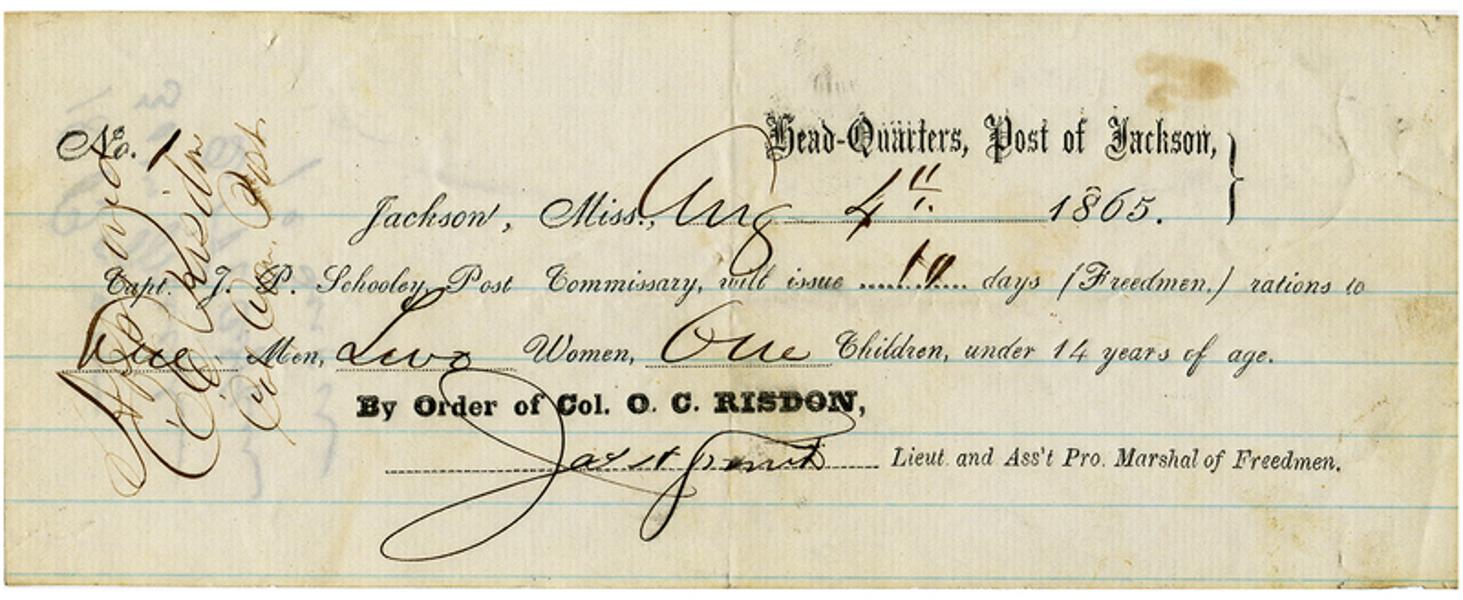 No. 1
Head-Quarters, Post of Jackson,
Jackson, Miss., Aug 4" 1865.
Capt. J. P. Schooley, Post Commissary, will issue 10 days (Freedmen,) rations to
One Men, Two Women, One Children, under 14 years of age.
By Order of Col. O. C. RISDON,
Jas H Lieut. and Ass't Pro. Marshal of Freedmen.
Approved
O C Risdon
Col Com. Post